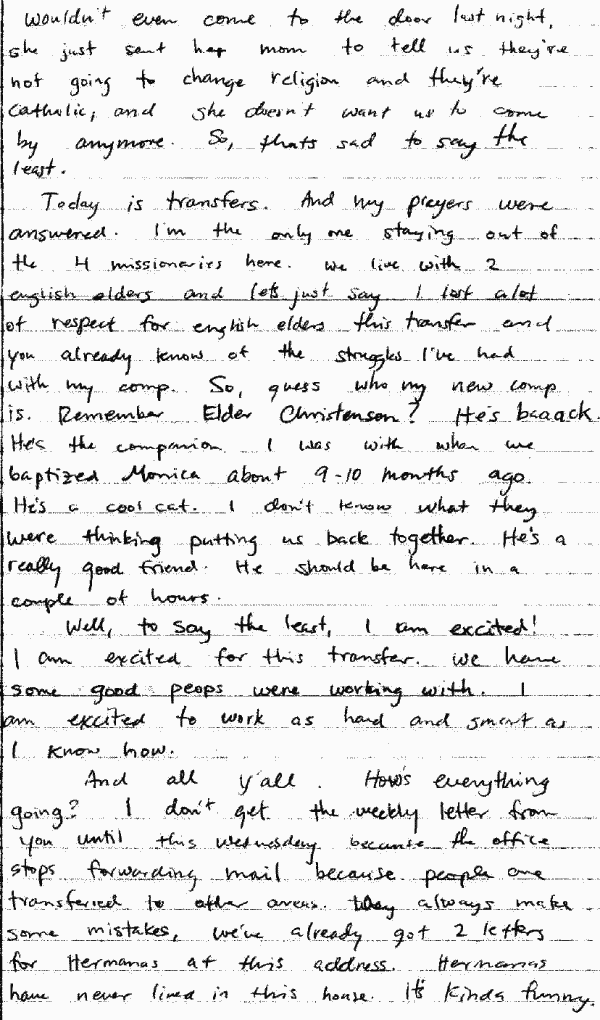 wouldn't even come to the door last night,
she just sent her mom to tell us they're
not going to change religion and they're
catholic, and she doesn't want us to come
by anymore. So, thats sad to say the
least.
Today is transfers. And my prayers were
answered. I'm the only one staying out of
the 4 missionaries here. we live with 2
english elders and lets just say I lost alot
of respect for english elders this transfer and
you already know of the struggles I've had
with my comp. So, guess who my new comp
is. Remember Elder Christenson? He's baaack.
He's the companion I was with when we
baptized Monica about 9-10 months ago.
He's a cool cat. I don't know what they
were thinking putting us back together. He's a
really good friend. He should be here in a
couple of hours.
Well, to say the least, I am excited!
I am excited for this transfer. we have
some good peops were working with. I
am excited to work as hard and smart as
I know how.
And all y'all. How's everything
going? I don't get the weekly letter from
you until this wednesday because the office
stops forwarding mail because people are
transferred to other areas. they always make
some mistakes, we've already got 2 letters
for Hermanas at this address. Hermanas
have never lived in this house. It's kinda funny.